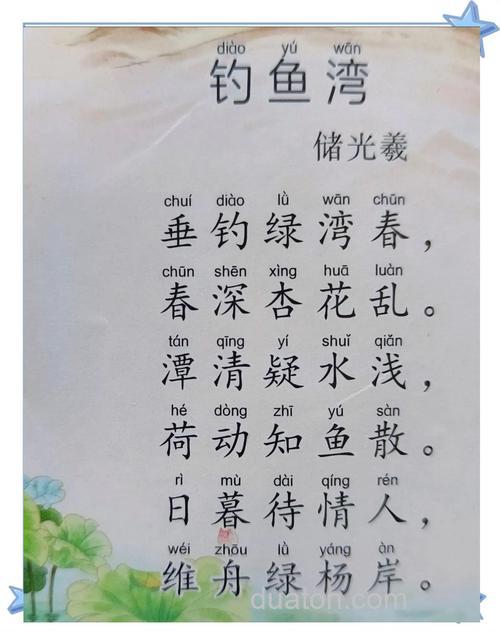 diào yú wān
钓鱼湾
储光羲
chuí diào lǜ wān chūn
垂钓绿湾春，
chūn shēn xìng huā luàn
春深杏花乱。
tán qīng yí shuǐ qiǎn
潭清疑水浅，
hé dòng zhī yú sàn
荷动知鱼散。
rì mù dài qíng rén
日暮待情人，
wéi zhōu lǜ yáng àn
维舟绿杨岸。
duatoh.com